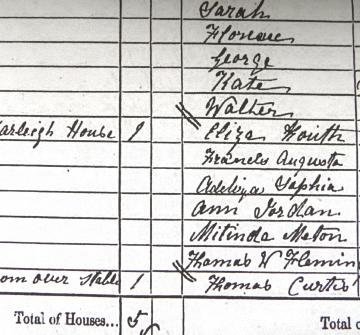 Sarah
Florence
George
Kate
Walter
arleigh House 1 Eliza
Francis Augusta
Adeliza Sophia
Ann Jordan
Mitinda
Thomas W Flemin
om over Stable 1 Thomas Curtis
Total of Houses... 5 Total o